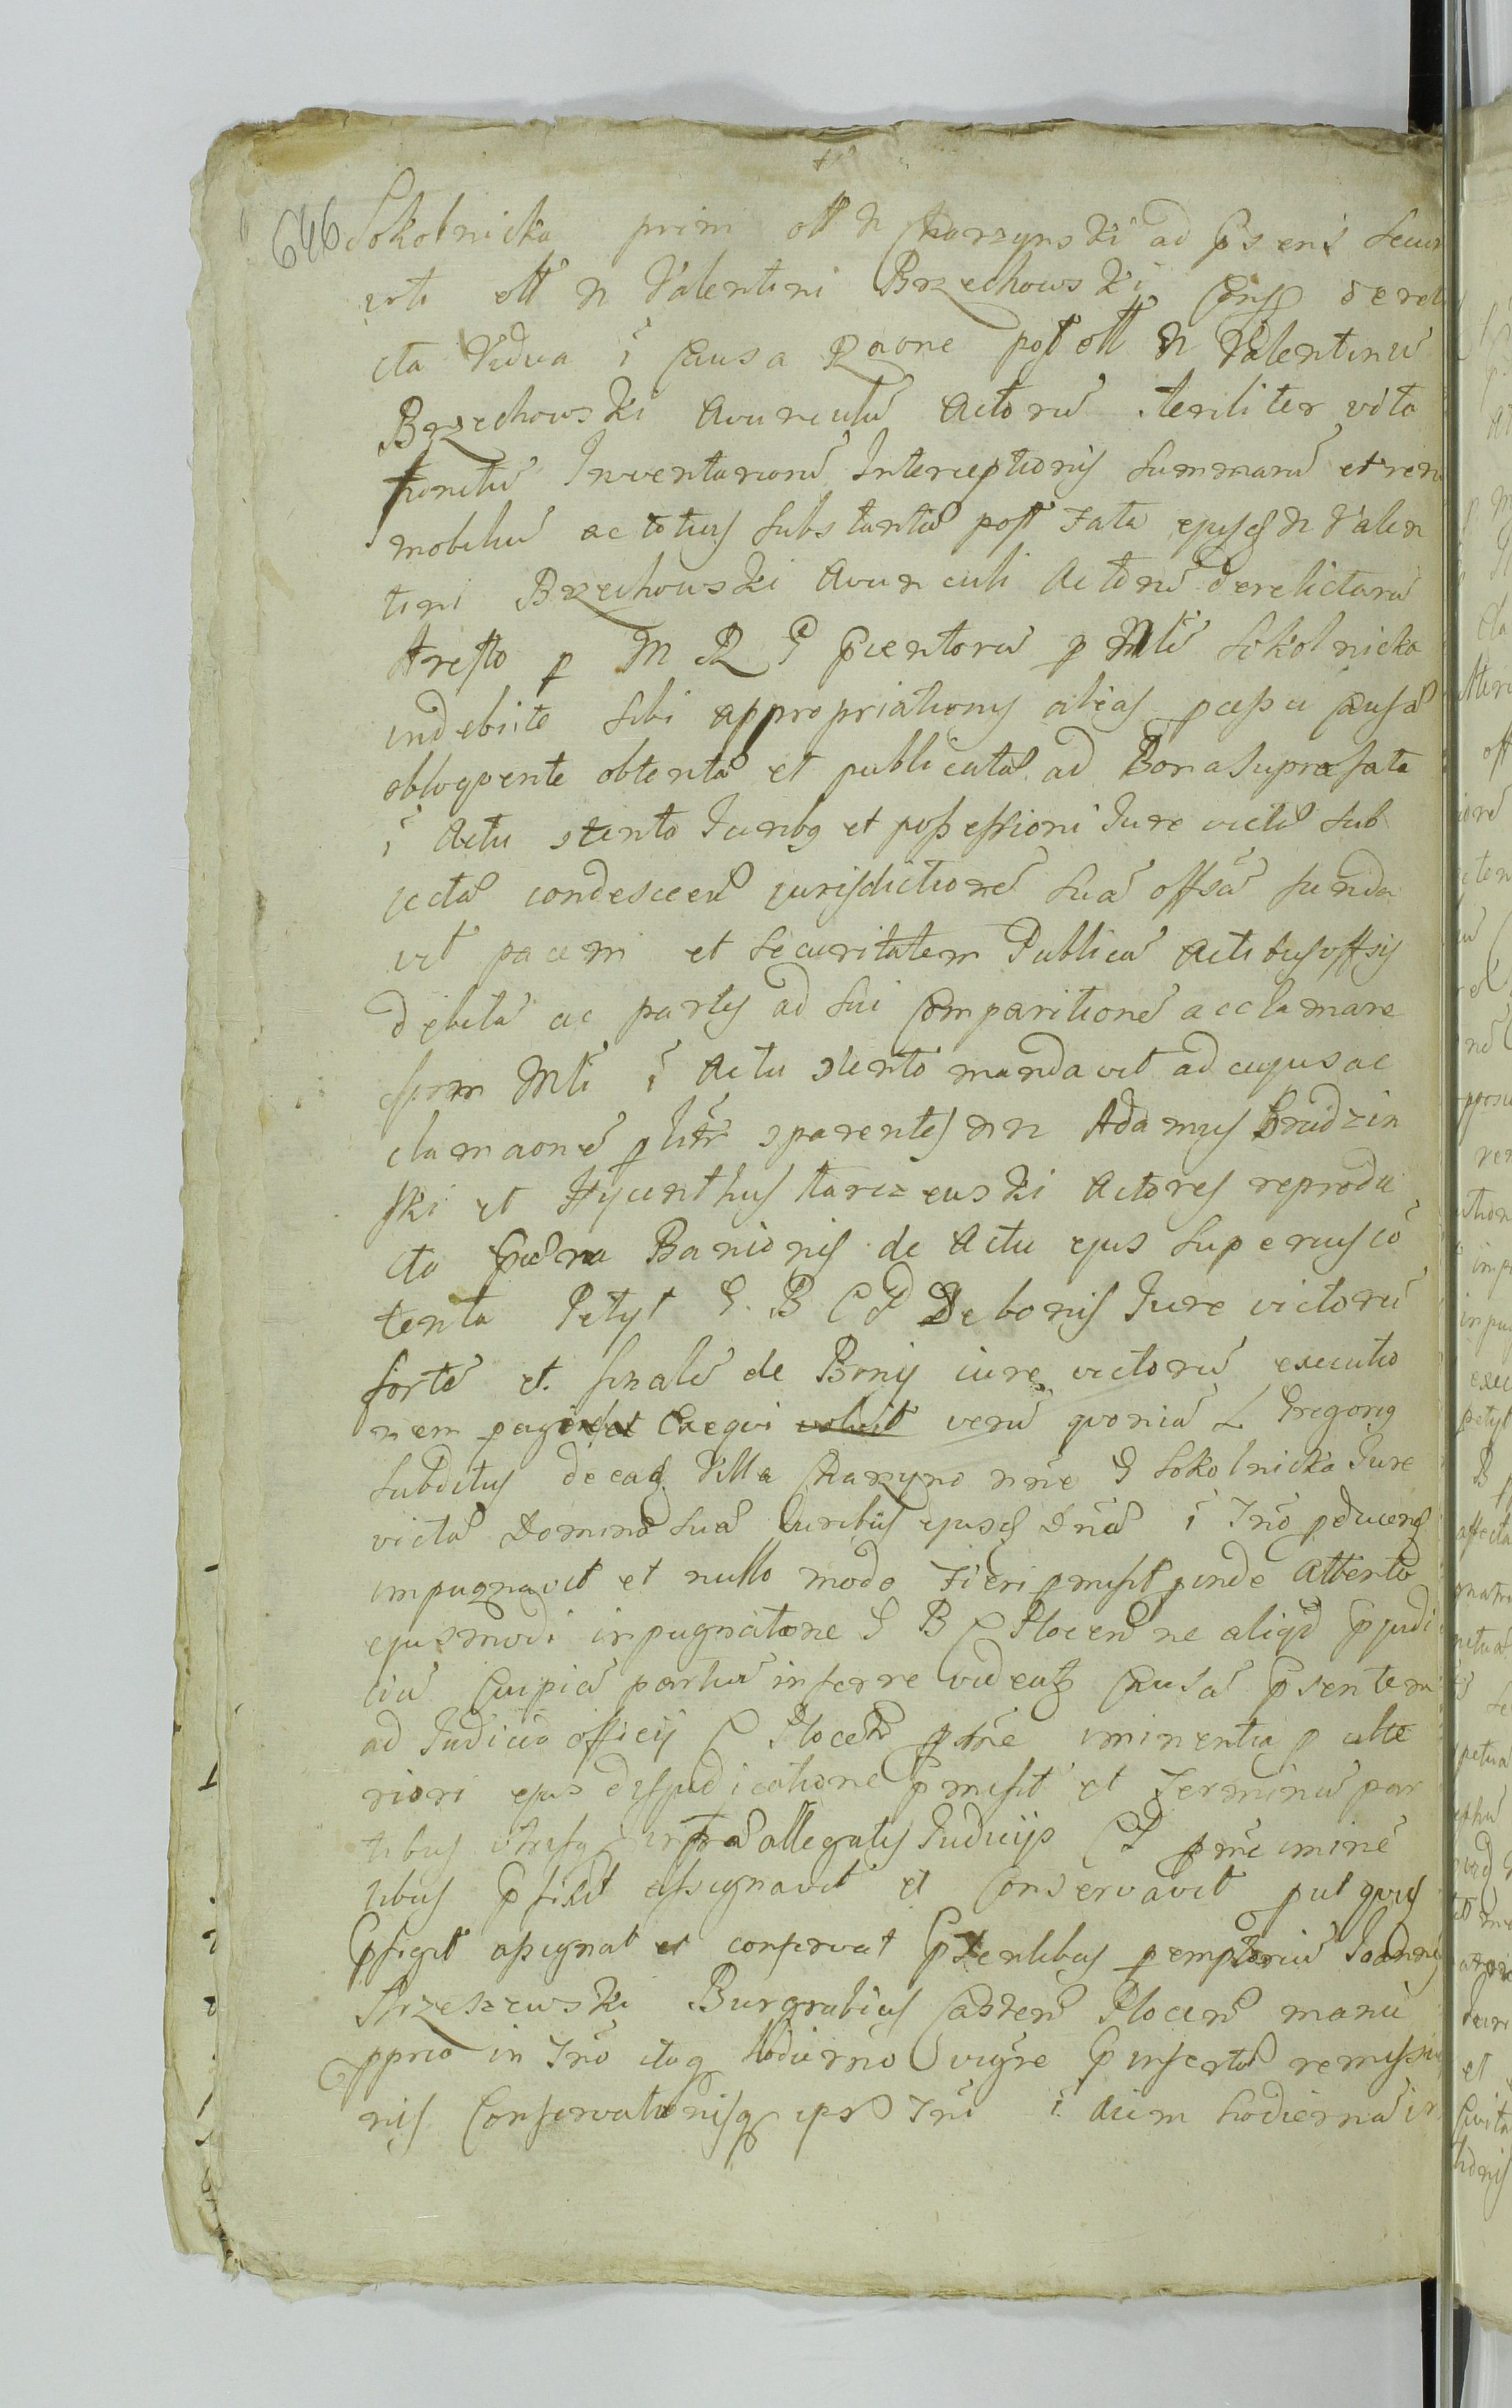 646 Sokolnicka prim olt N Charzynski ad psens Secun
olt N Valentini Brzechowski Consg dereli
cta Vidua i Causa Raone post olt N Valentinu
Brzechowski Avunculu Actoru steriliter vita
functu Inventarionu Interceptionis Summaru et reru
mobiliu ac totius substantia post Fata ejusq N Valen
tini Brzechowski Avunculi Actoru derelictaru
Aresto p M R G puentoru p Mli Sokolnicka
indebite Sibi appropriationis alias causa
obloquente obtenta et publicata ad Bona Supra fata
i Actu stento Juribg et possessioni Jure victa Sub
jecta condescen jurisdictione sua offsa funda
vit pacem et Securitatem Publica Actibus offsis
debita ac partes ad sui Comparitione acclamare
Mli i Actu stento mandavit ad cujus ac
clamaone sparentes NN Adamus Brudzin
ski et Hyacinthus Actores reprodu
cto Banionis de Actu ejus Superius co
tenta Petyt G. B C P De bonis Jure victoru
forte et finale de Bonis iure victoru executio
nem Exequi voluit veru quonia L Gregorig
Subditus de eadg Villa Charzyno nne G Sokolnicka Jure
victa Domina sua Juribus ejusdg Dna i Tno
impugnavit et nullo modo Fieri pmisit pinde Attento
ejusmodi inpugnatone G B C Plocen ne aliqd pjudi
ciu Cuipia partiu inferre videatg Causa psentem
ad Judicia officij C Plocen pme iminentia p ulte
riori ejus dijudicatione pmisit et Terminu par
tibus utrisq infra allegatis Judicijs C P pme imine
tibus pfixit assignavit et Conservavit put quidg
pfigit assignat et conservat psentibus pemptoriu Joannes
Strzeszewski Burgrabius Castren Plocen manu
ppria in Tno itaq hodierno vigre pinserta remissio
nis Conservationisq ipso Tno i diem hodierna in